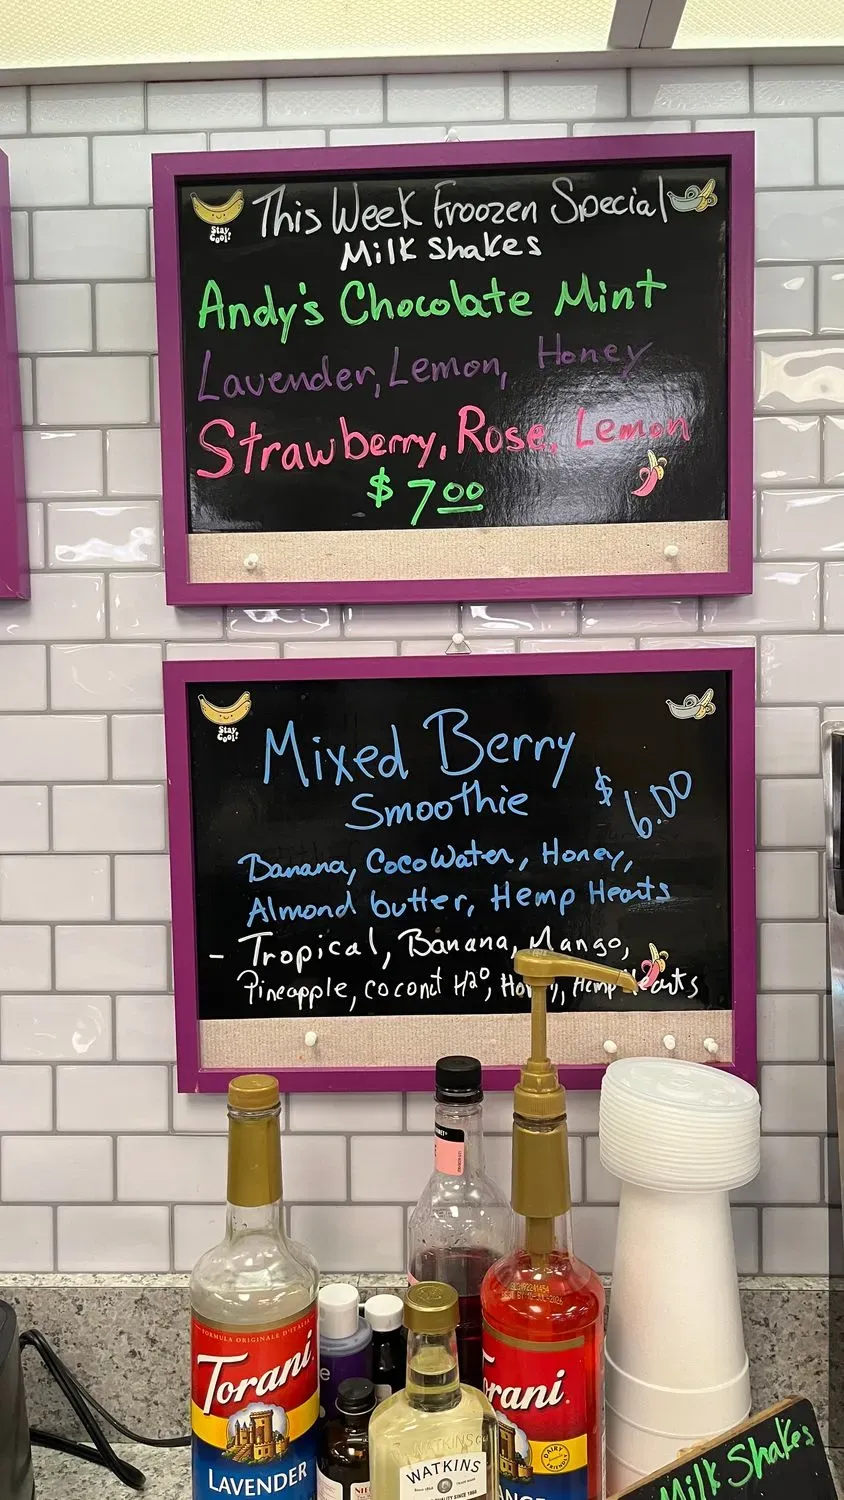 Stay
Cool!
This Week Froozen Special
Milk Shakes
Andy's Chocolate Mint
Lavender, Lemon, Honey
Strawberry, Rose, Lemon
$ 7.00
Stay
Cool!
Mixed Berry
Smoothie
$ 6.00
Banana, Coco Water, Honey,
Almond butter, Hemp Hearts
- Tropical, Banana, Mango,
Pineapple, coconut H2O, Honey, Hemp Hearts
FORMULA ORIGINALE D'ITALIA
Torani
LAVENDER
WATKINS
WATKINS
rani
DAIRY
FRIENDLY
Milk Shakes